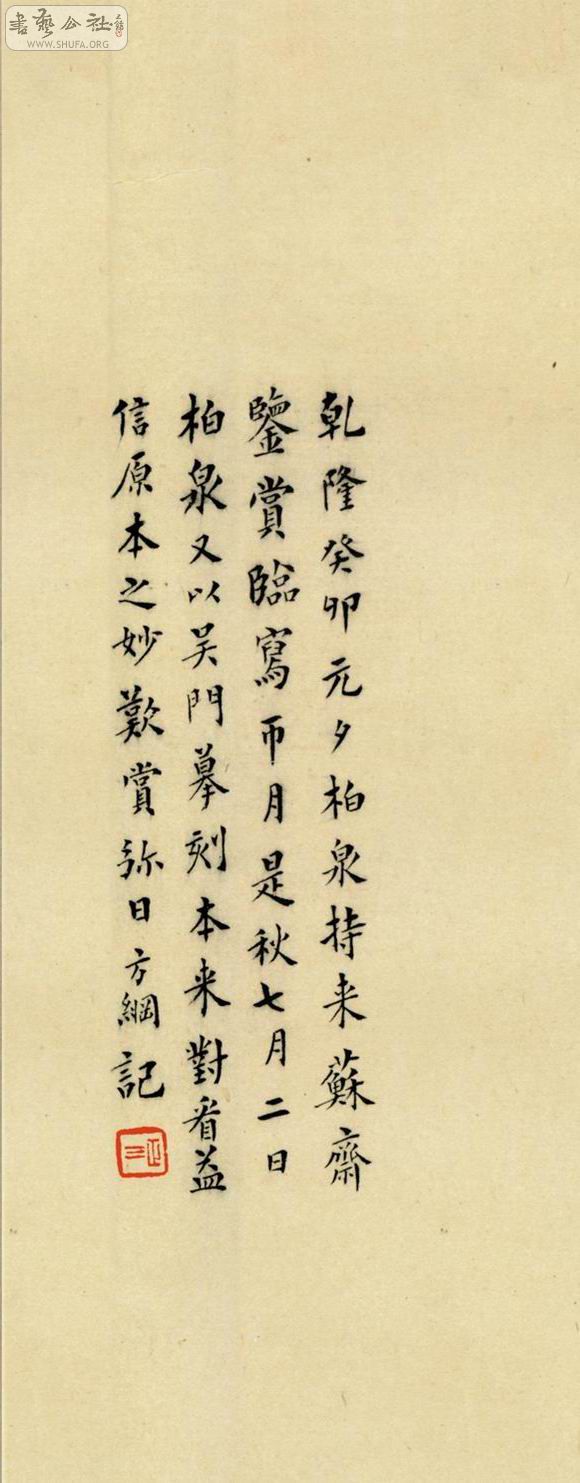 書藝公社
WWW.SHUFA.ORG
乾隆癸卯元夕柏泉持来蘇齋
鑒賞臨寫帀月是秋七月二日
柏泉又以吴門摹刻本来對看益
信原本之妙歎賞弥日方綱記